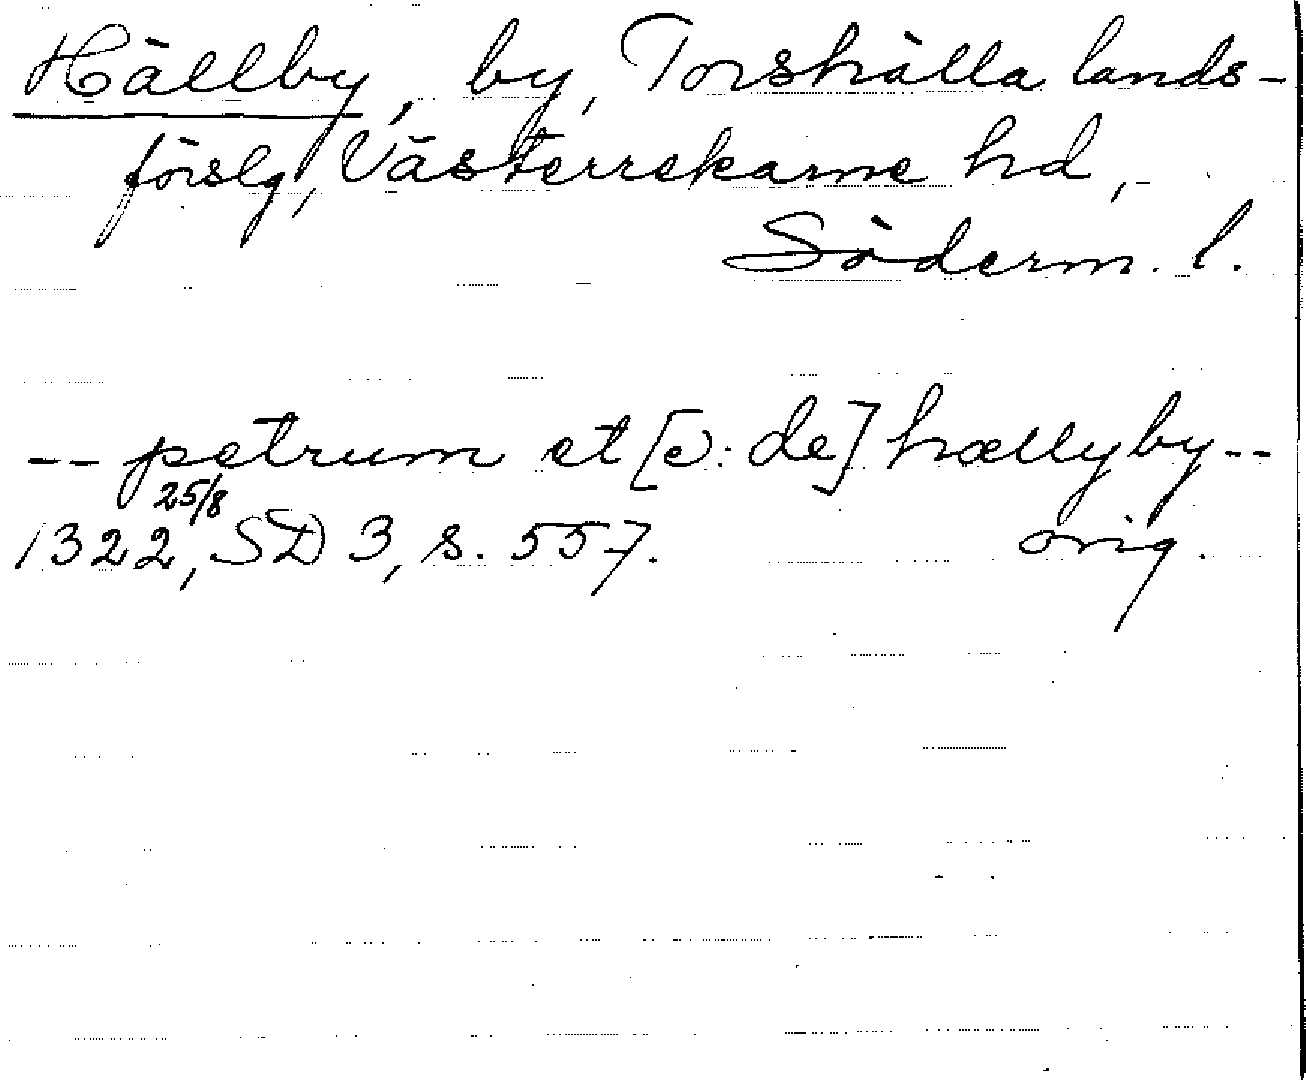 Hällby, by, Torshälla lands-
förslg, Västerrekarne hd,
Söderm. l.
-- petrum et [ɔ: de] hællyby --
25/8
1322, SD 3, s. 557. orig.